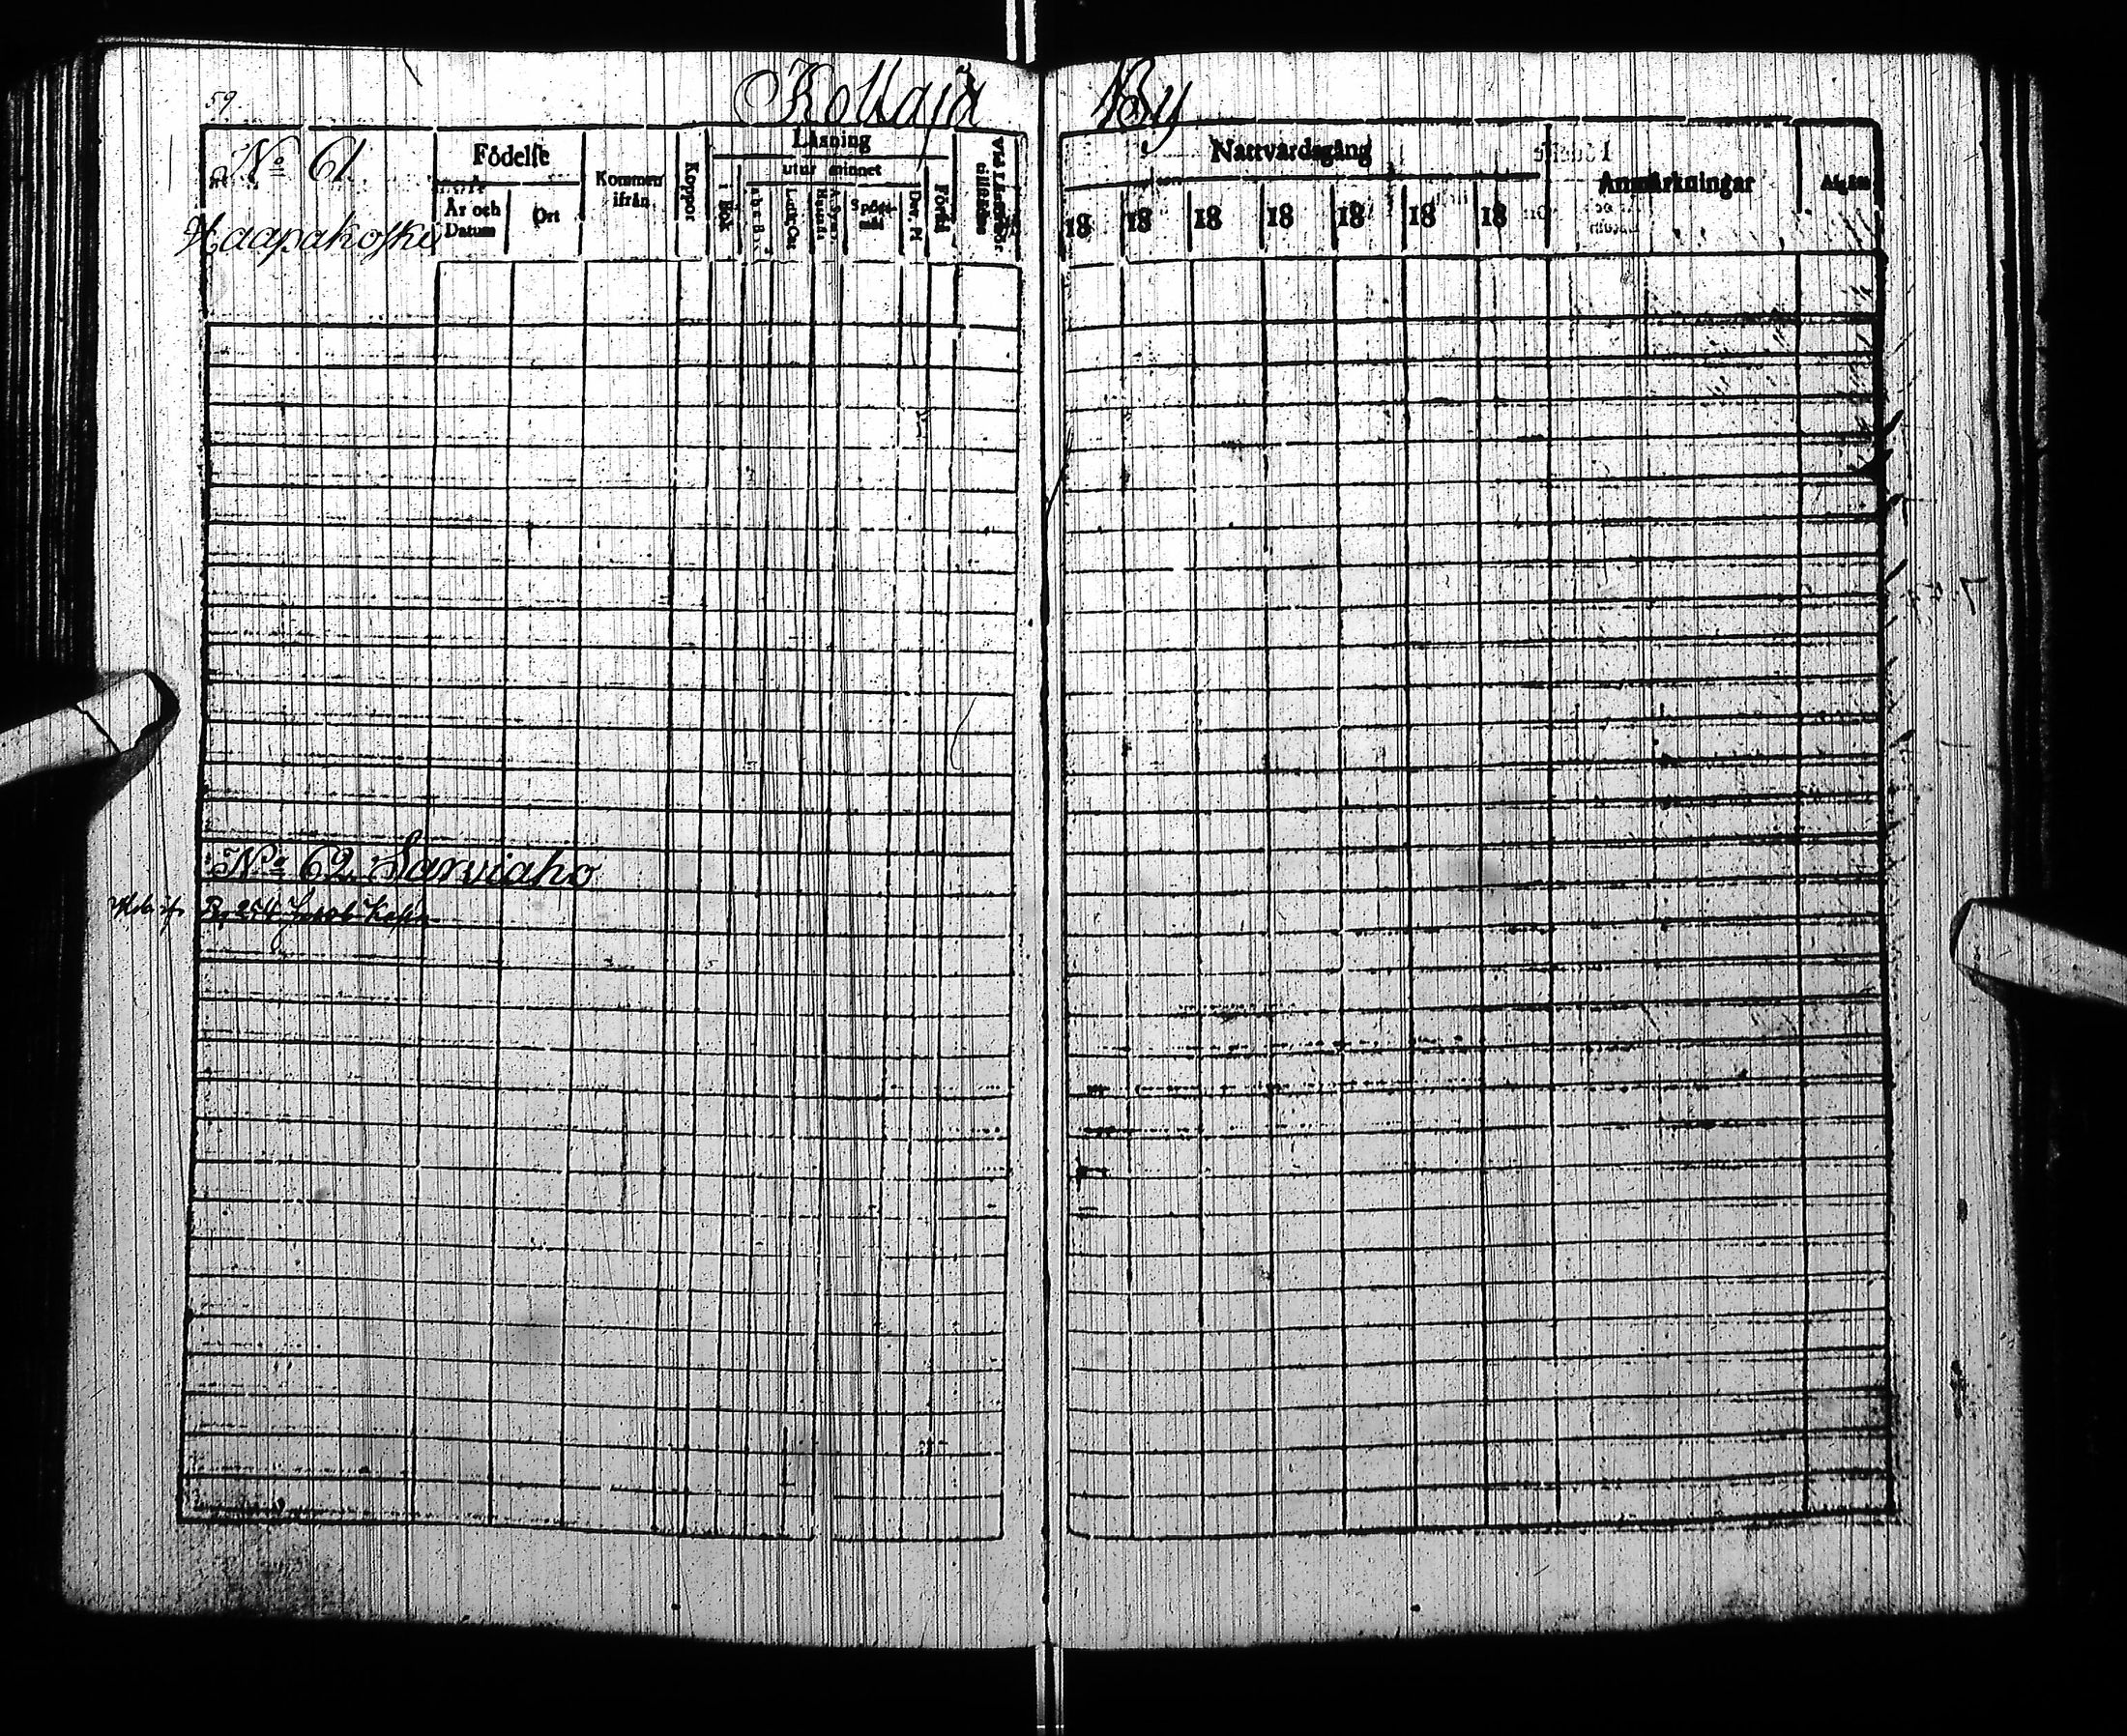 59
Kollaja By
No 61
Haapakoski
Födelse
År och Datum
Ort
Kommen ifrån
Koppor
Läsning
utur minnet
i Bok
Luth. Cat.
Förstå
Nattvardsgång
18 18 18 18 18 18 18
Anmärkningar
No 62 Sarviaho
254 Jacob